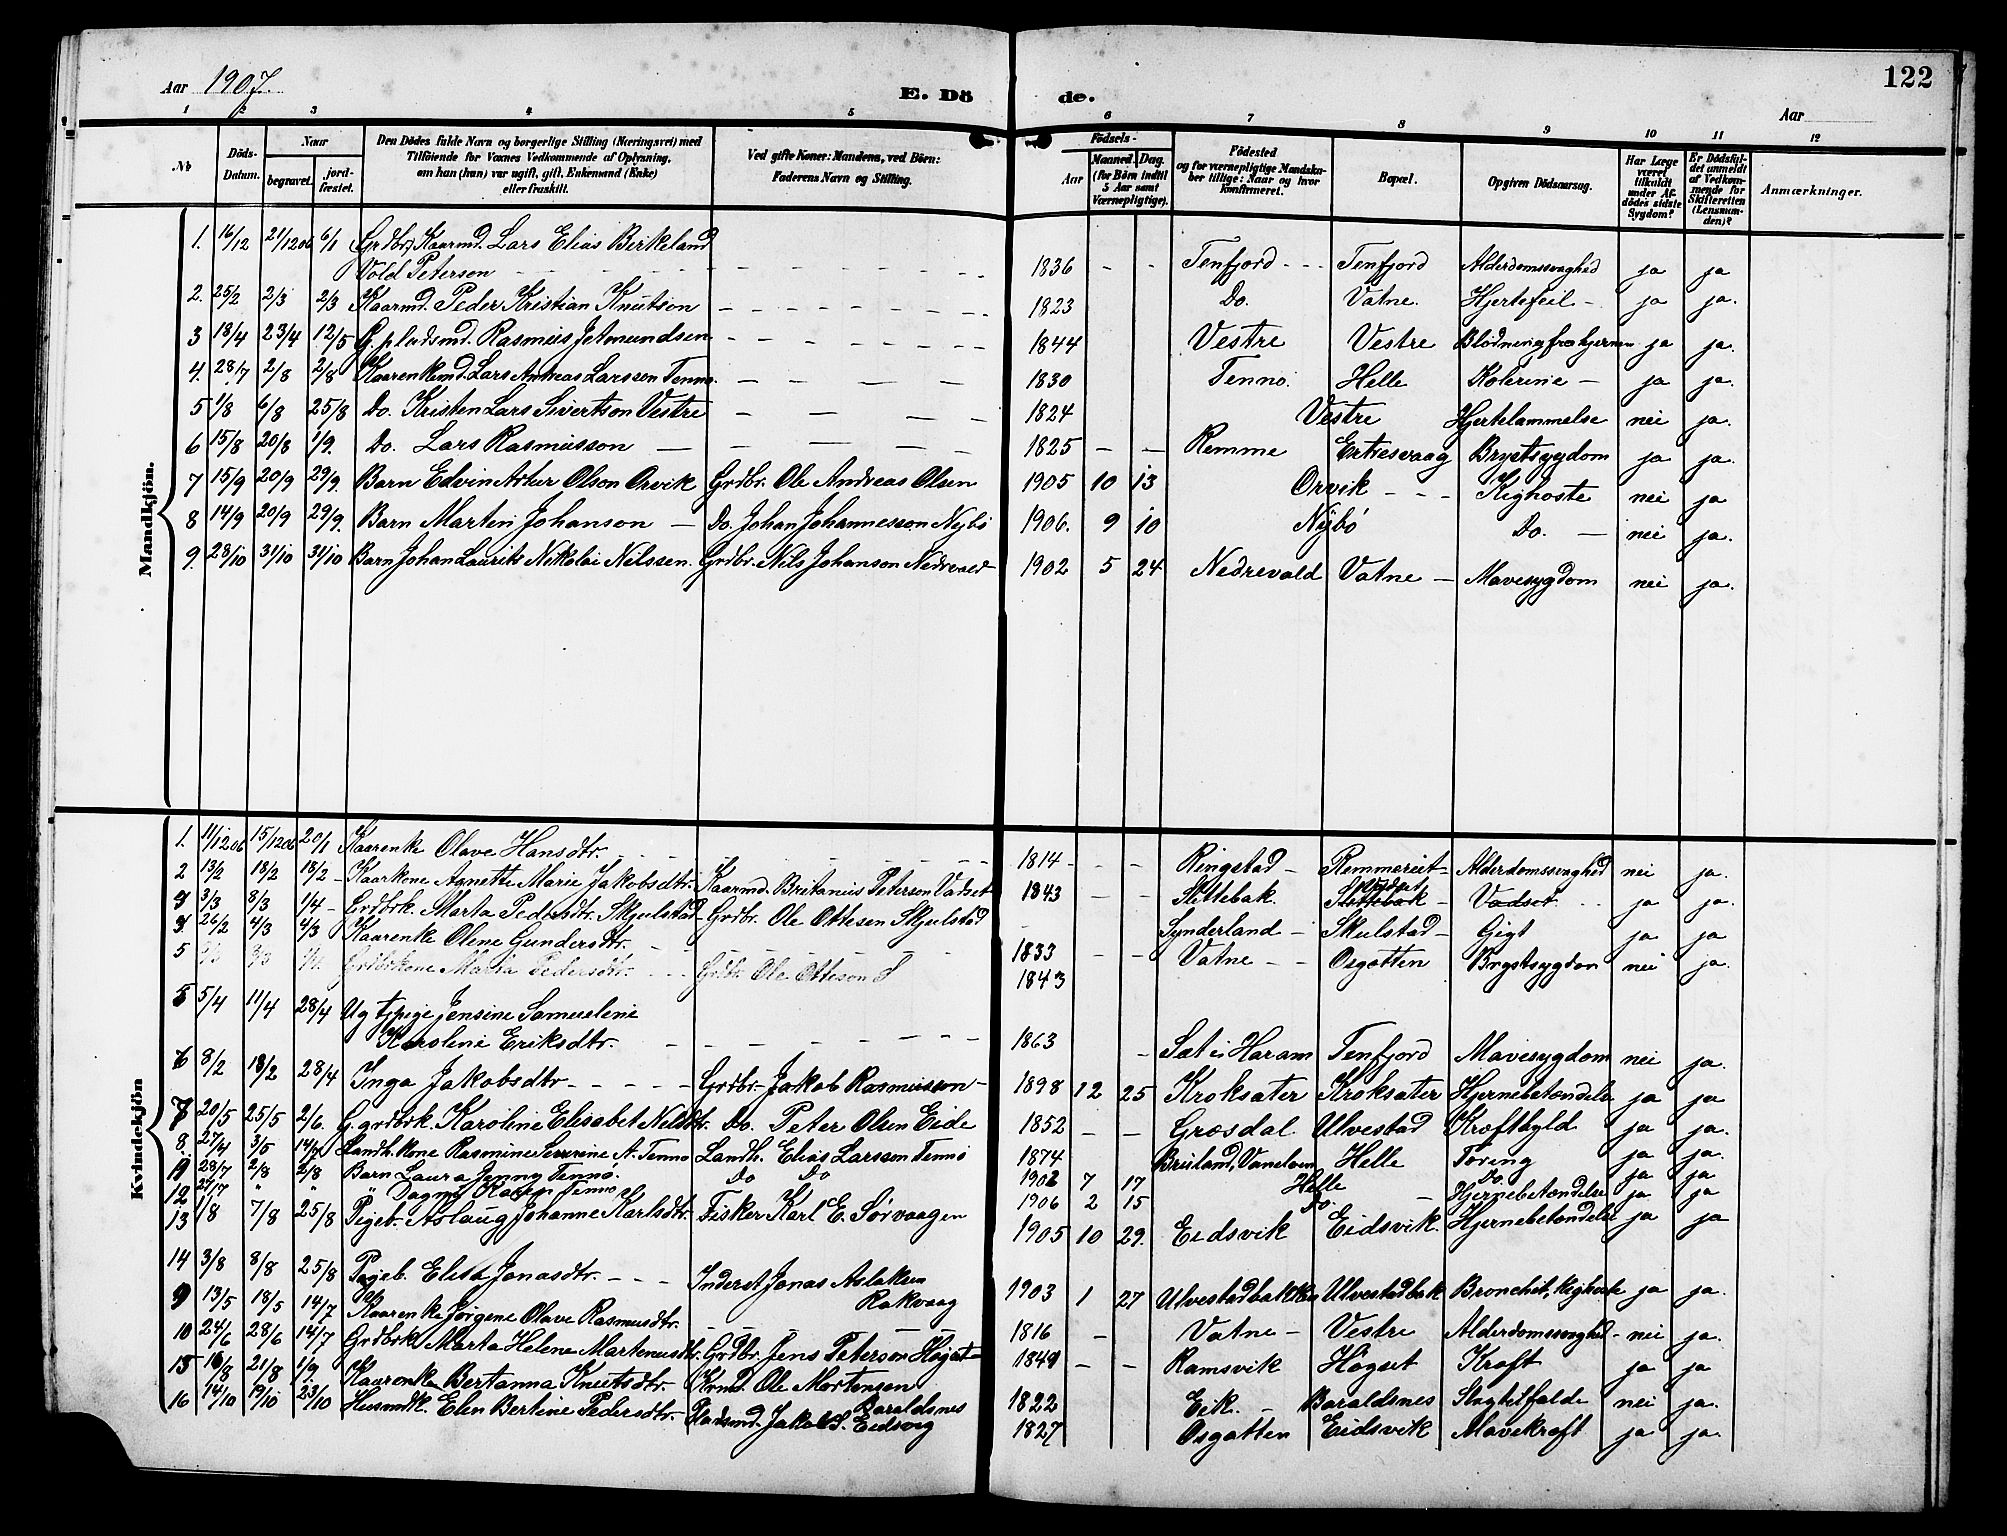 122
Aar 1907.
E. Döde.
Aar
1 2 3 4 5 6 7 8 9 10 11 12
No
Döds-Datum.
Naar
begravet. jord-fæstet.
Den Dödes fulde Navn og borgerlige Stilling (Næringsvei) med
Tilföiende for Voxnes Vedkommende af Oplysning,
om han (hun) var ugift, gift, Enkemand (Enke)
eller fraskilt.
Ved gifte Koner: Mandens, ved Börn:
Faderens Navn og Stilling.
Födsels-
Aar Maaned. Dag.
(for Börn indtil
5 Aar samt
Værnepligtige).
Födested
og for værnepligtige Mandska-
ber tillige: Naar og hvor
konfirmeret.
Bopæl.
Opgiven Dödsaarsag.
Har Læge
været
tilkaldt
under Af-
dödes sidste
Sygdom?
Er Dödsfal-
det anmeldt
af Vedkom-
mende for
Skifteretten
(Lensman-
den)?
Anmærkninger.
Mandkjön.
1. 16/12 21/12 06 6/1 Grdbr. Kaarmd. Lars Elias Birkeland
Vold Peterson 1836 - - Tenfjord - Tenfjord Alderdomssvaghed ja ja
2. 25/2 2/3 2/3 Kaarmd. Peder Kristian Knutson 1823 Do. Vatne. Hjertefeil - ja ja.
3 18/4 23/4 12/5 G. pladsmd. Rasmus Jetmundsen 1844 Vestre Vestre Blödning fra hjernen ja ja.
4. 28/7 2/8 2/8 Kaarenkemd. Lars Andreas Larsson Tennø. 1830 Tennø. Helle Kolerine - ja ja.
5 1/8 6/8 25/8 Do. Kristen Lars Sivertson Vestre 1824 Vestre Hjertelammelse nei ja.
6 15/8 20/8 1/9. Do. Lars Rasmusson 1825 - - Remme Ertresvaag Brystsygdom ja ja.
7 15/9 20/9 29/9. Barn Edvin Artur Olson Orvik Grdbr. Ole Andreas Olsen 1905 10 13 Orvik - Kighoste nei ja
8 14/9 20/9 29/9. Barn Martin Johanson - Do. Johan Johannesson Nybø 1906. 9 10 Nybø Do. - nei ja.
9. 28/10 31/10 31/10 Barn Johan Laurits Nikolai Nilssen. Grdbr. Nils Johanson Nedrevald 1902 5 24 Nedrevald Vatne - Mavesygdom nei ja.
Kvindekjön
1. 11/12 06 15/12 06 20/1 Kaarenke Olave Hansdtr. 1814 - - Ringstad - Remmereit - Alderdomssvaghed nei ja.
2 13/2 18/2 18/2 - Kaarkone Agnette Marie Jakobsdtr. Kaarmd. Britanius Peterson Vatset 1843 - - Slettebak. Slettebak - Vadset ja ja.
3 3/3 8/3 1/4 - Grdbrk. Marta Pedersdtr. Skjulstad - Grdbr. Ole Ottesen Skjulstad Synderland - Skulstad - Gigt ja ja
4 26/2 4/3 4/3 Kaarenke Olene Gundersdtr. 1833 - - Vatne - - Osgatten Brystsygdom nei ja.
5 Grdbrkone Maria Pedersdtr. Grdbr. Ole Otteson S 1843
5 5/4 11/4 28/4 Ug tjpige Jensine Samueline
Karoline Eriksdtr. 1863 - Sæt i Haram Tenfjord Mavesygdom nei ja.
6 8/2 18/2 28/4 Inga Jakobsdtr - Grdbr. Jakob Rasmusson - 1898 12 25 Kroksater Kroksater Hjernebetændelse ja ja
7 20/5 25/5 2/6. G. grdbrk. Karoline Elisabet Nelsdtr. Do. Peter Olsen Eide 1852 - - Græsdal Ulvestad Kræftbyld ja ja.
8. 27/4 3/5 14/7 Landh. Kone Rasmine Severine A. Tennø Landh. Elias Larsson Tennø 1874 Helle Tæring ja ja.
11 28/7 2/8 2/8 Barn Laura Jenny Tennø. Do Do 1902 7 17 Helle Do. ja ja
12 27/7 " " Dagny Karen Tennø 1906 2 15 Do. - Hjernebetændelse ja. ja
13 1/8 7/8 25/8 Pigeb. Aslaug Johanne Karlsdtr. Fisker Karl E. Sørvaagen 1905 10 29. Eidsvik Eidsvik. Hjernebetændelse ja ja
14 3/8 8/8 25/8 Pigeb. Elisa Jonasdtr. - - - Inderst Jonas Aslaksen
Rakvaag 1903 1 27 Ulvestadbakken Ulvestadbak Bronchit, Kighoste ja ja.
9 13/5 18/5 14/7 Kaarenke Jørgene Olave Rasmusdtr. 1816 - Vatne - Vestre Alderdomssvaghed - nei ja.
10 24/6 28/6 14/7 Grdbrk Marta Helene Martinusdtr. Grdbr. Jens Peterson Høgset 1849 - - Ramsvik Høgset Kræft ja ja
15 16/8 21/8 1/9. Kaarenke Bertanna Knutsdtr. Krmd. Ole Mortensen
Baraldsnes 1822 Eik. - Baraldsnes Slagtilfælde nei ja.
16 14/10 19/10 23/10 Husmdk. Elen Bertine Pedersdtr. - Pladsmd. Jakob S. Eidsvig 1827 Osgatten Eidsvik Mavekræft ja ja.